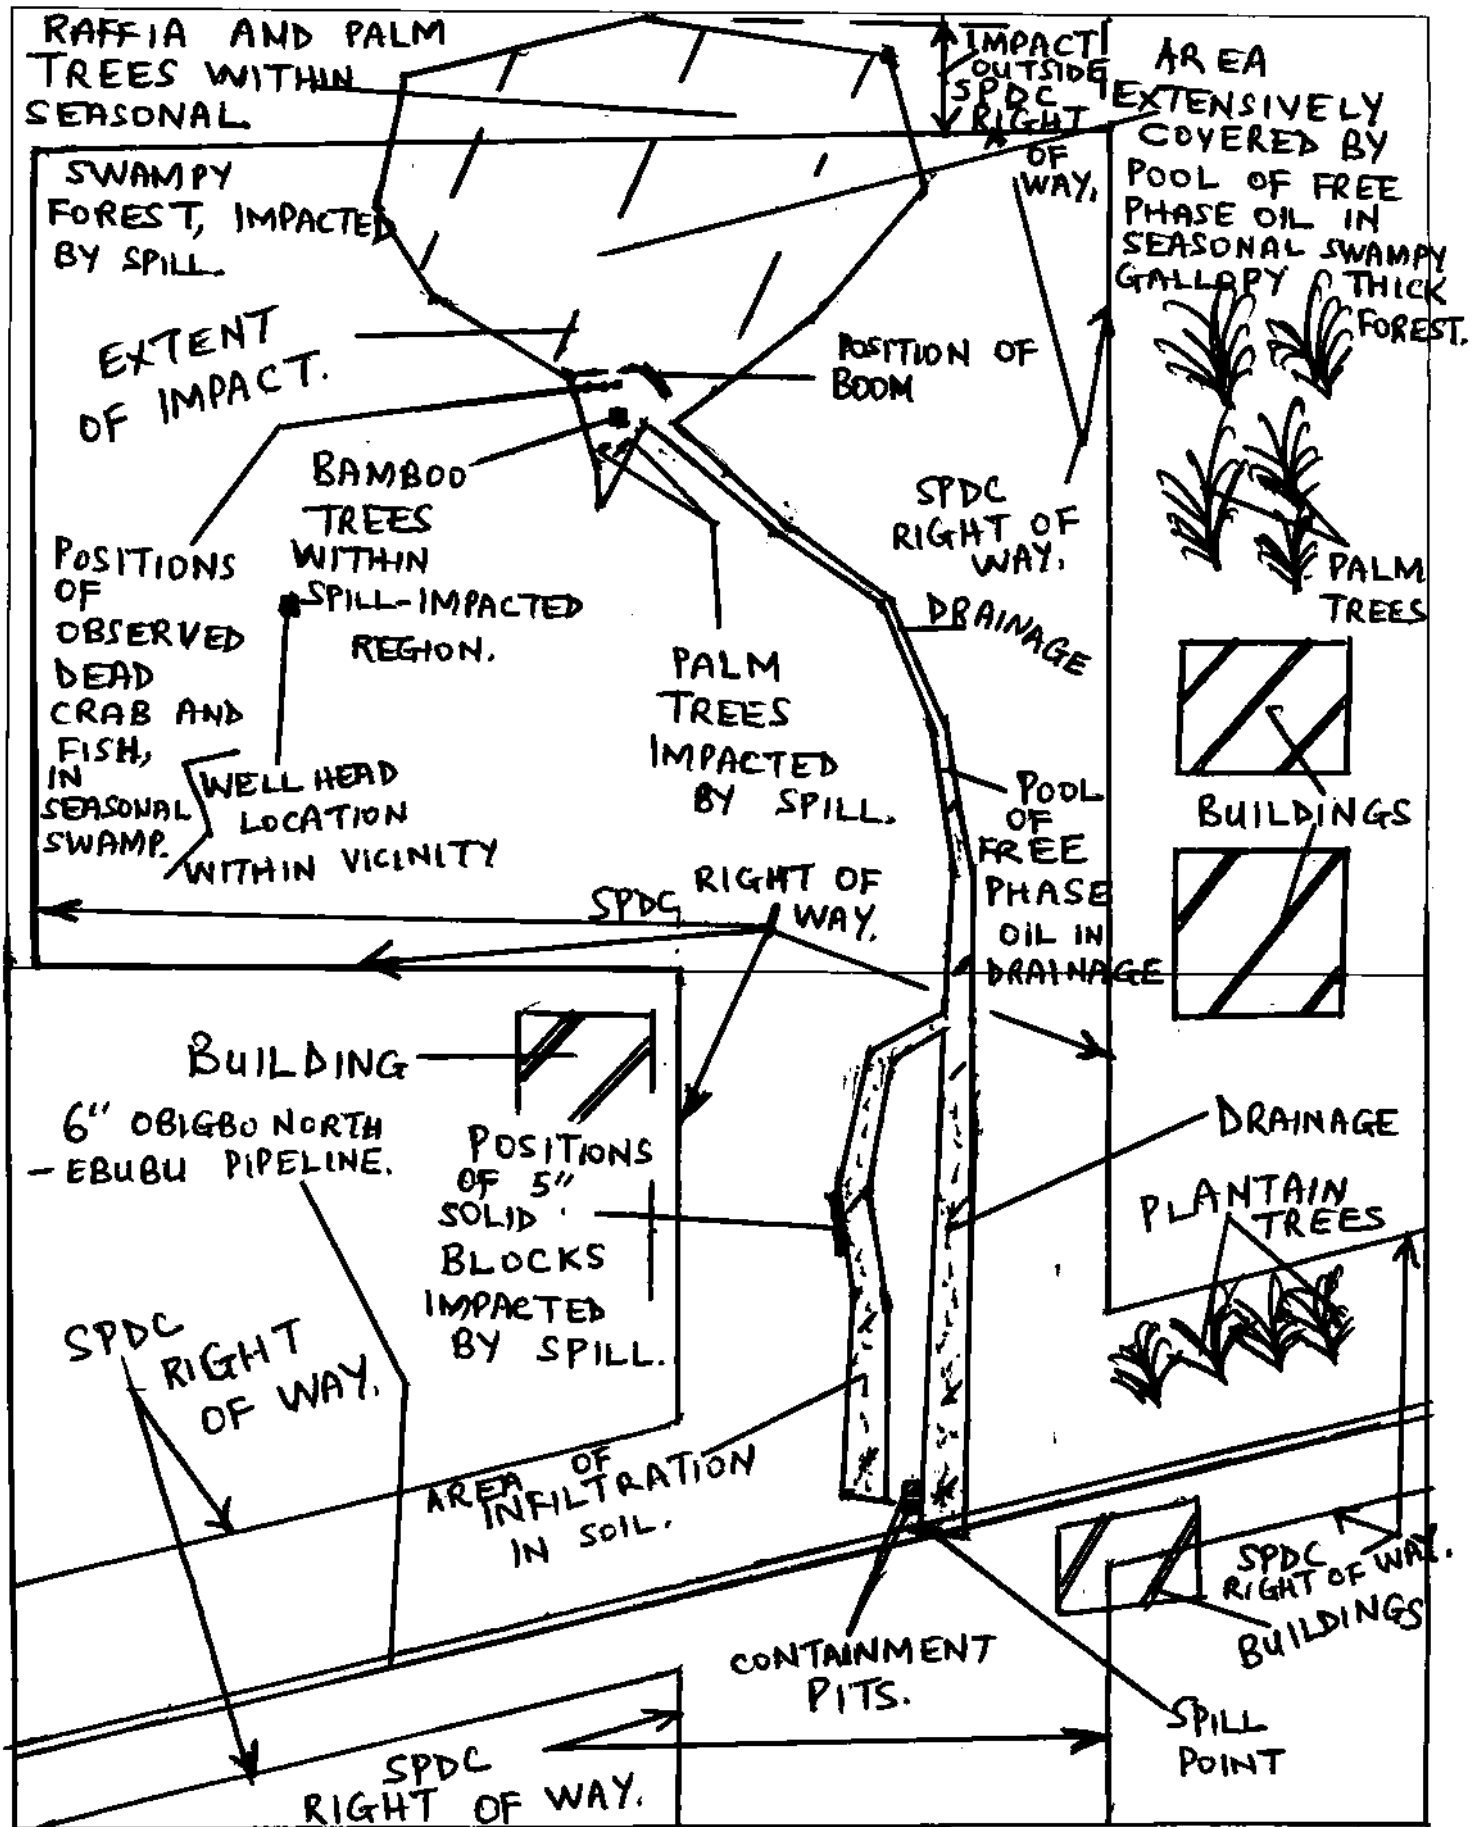 RAFFIA AND PALM
TREES WITHIN
SEASONAL
SWAMPY
FOREST, IMPACTED
BY SPILL.
IMPACT
OUTSIDE
SPDC
RIGHT
OF
WAY.
AREA
EXTENSIVELY
COVERED BY
POOL OF FREE
PHASE OIL IN
SEASONAL SWAMPY
GALLOPY THICK
FOREST.
EXTENT
OF IMPACT.
POSITION OF
BOOM
BAMBOO
TREES
WITHIN
SPILL-IMPACTED
REGION.
SPDC
RIGHT OF
WAY.
POSITIONS
OF
OBSERVED
DEAD
CRAB AND
FISH,
IN
SEASONAL
SWAMP.
PALM
TREES
DRAINAGE
PALM
TREES
IMPACTED
BY SPILL.
WELL HEAD
LOCATION
WITHIN VICINITY
POOL
OF
FREE
PHASE
OIL IN
DRAINAGE
BUILDINGS
SPDC RIGHT OF
WAY.
BUILDING
6" OBIGBO NORTH
- EBUBU PIPELINE.
POSITIONS
OF 5"
SOLID
BLOCKS
IMPACTED
BY SPILL.
DRAINAGE
PLANTAIN
TREES
SPDC
RIGHT
OF WAY.
AREA OF
INFILTRATION
IN SOIL.
SPDC
RIGHT OF WAY.
BUILDINGS
CONTAINMENT
PITS.
SPILL
POINT
SPDC
RIGHT OF WAY.